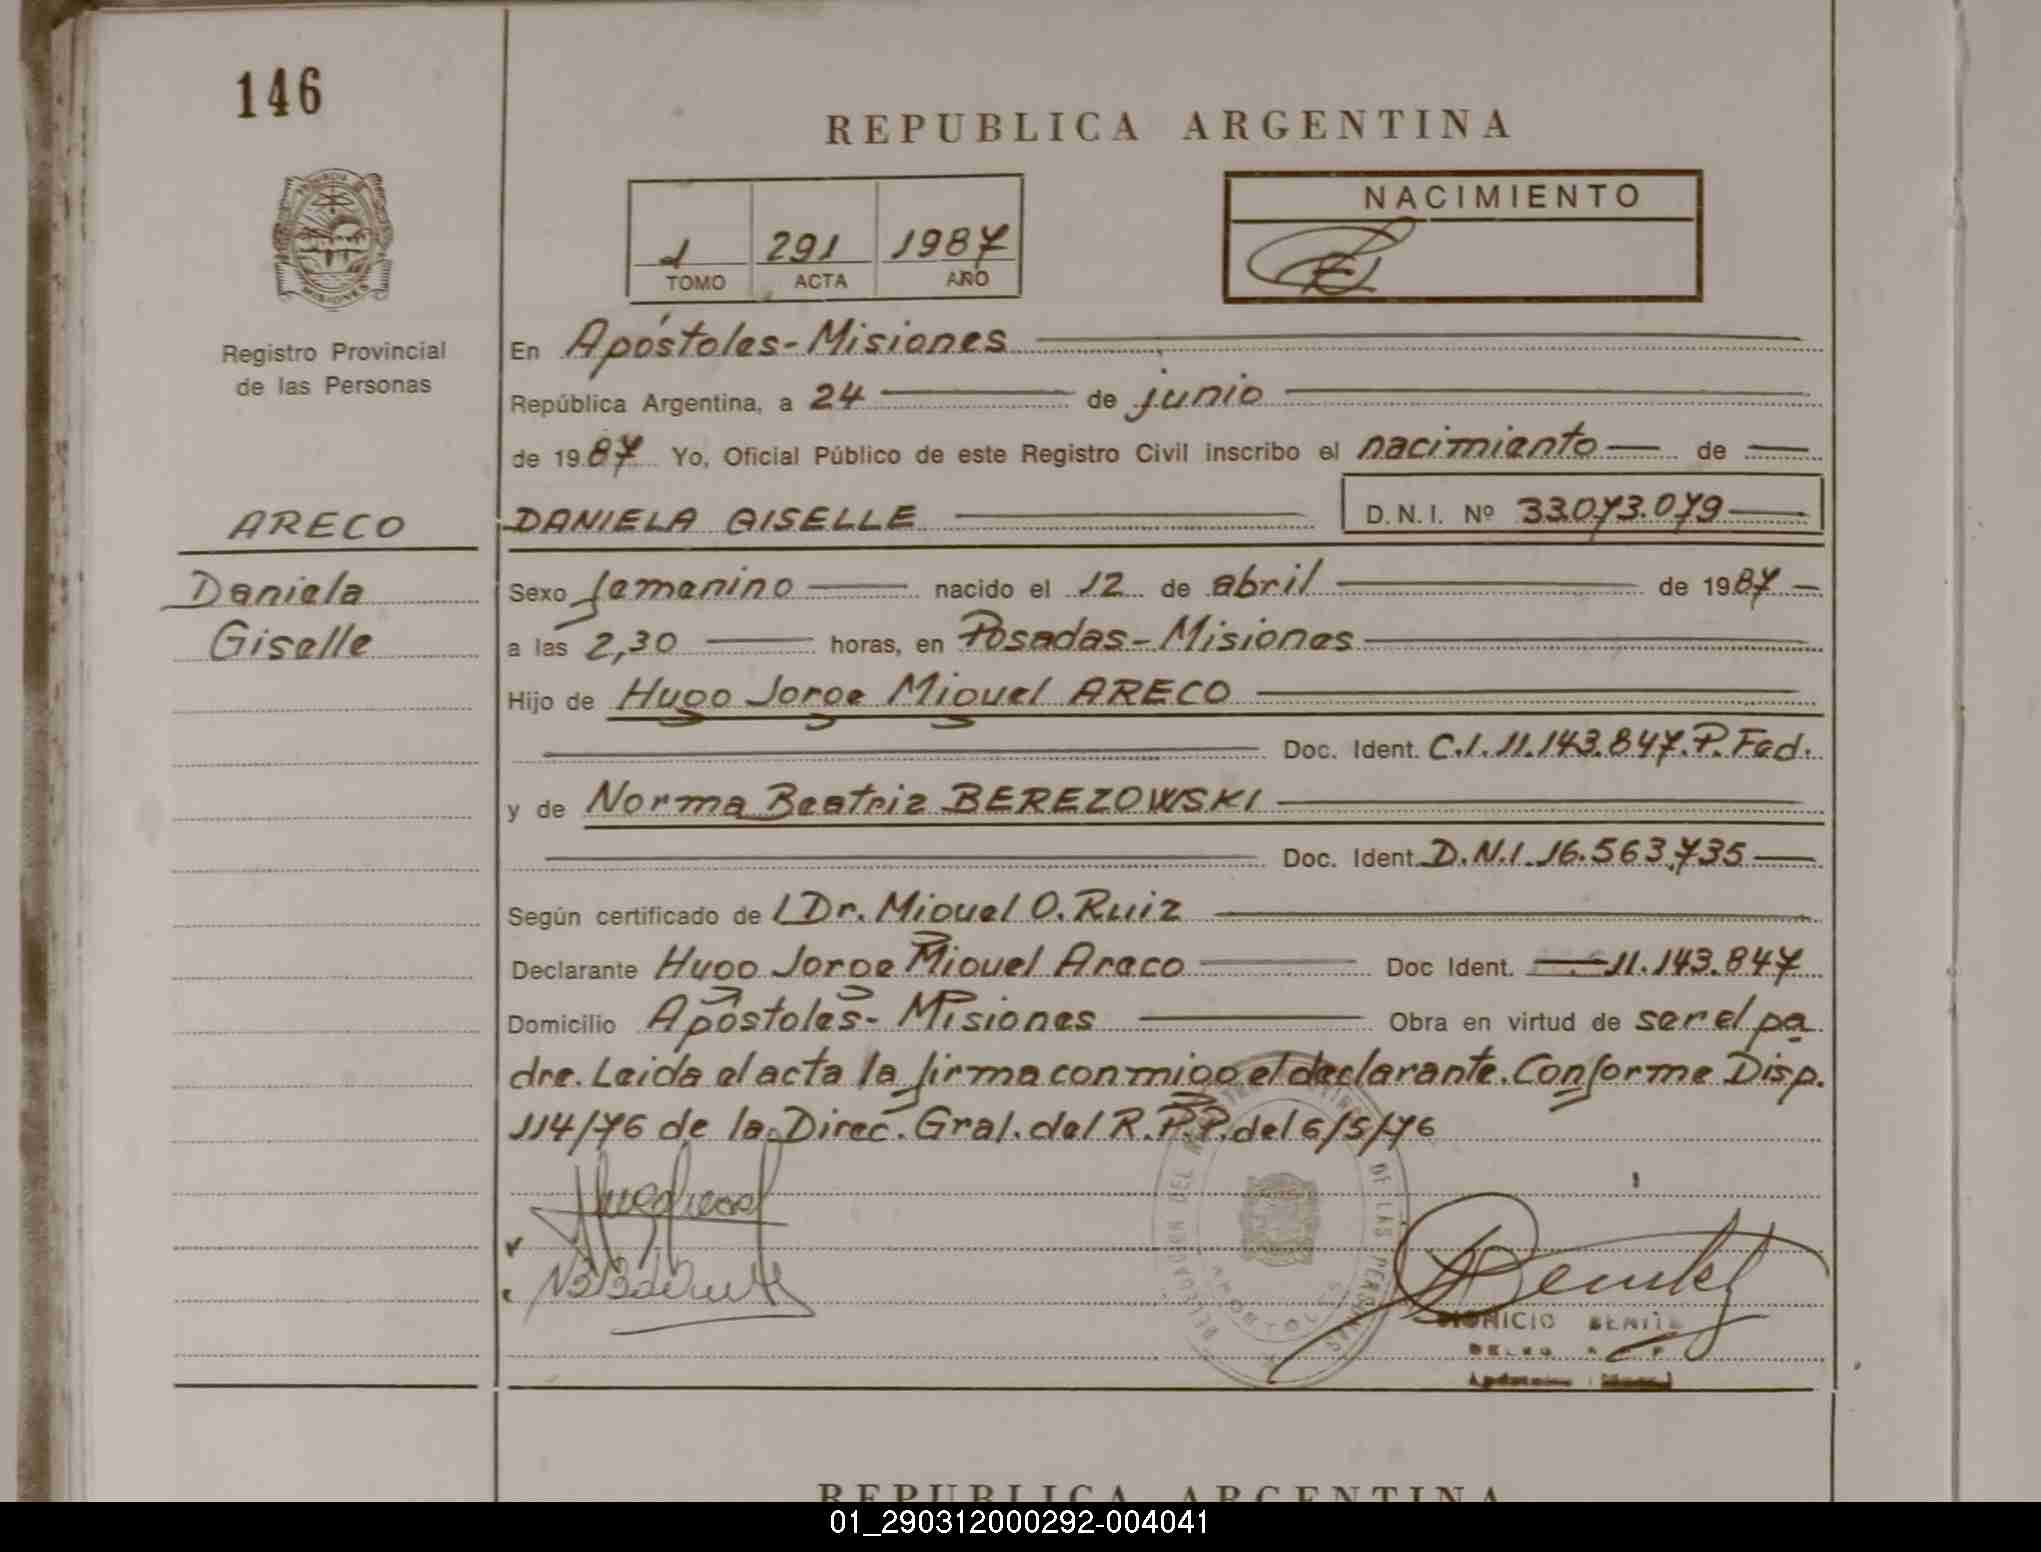 146
REPUBLICA ARGENTINA
NACIMIENTO
1 291 1987
TOMO ACTA AÑO
MISIONES
Registro Provincial
de las Personas
En Apóstoles-Misiones
República Argentina, a 24 de junio
de 1987 Yo, Oficial Público de este Registro Civil inscribo el nacimiento de
ARECO
DANIELA GISELLE D.N.I. Nº 33.073.079
Daniela
Giselle
Sexo femenino nacido el 12 de abril de 1987
a las 2,30 horas, en Posadas-Misiones
Hijo de Hugo Jorge Miguel ARECO
Doc. Ident. C.I. 11.143.847.P.Fed.
y de Norma Beatriz BEREZOWSKI
Doc. Ident. D.N.I. 16.563.735
Según certificado de Dr. Miguel O. Ruiz
Declarante Hugo Jorge Miguel Areco Doc Ident. 11.143.847
Domicilio Apóstoles- Misiones Obra en virtud de ser el pa
dre. Leida el acta la firma conmigo el declarante. Conforme Disp.
114/76 de la Direc. Gral. del R.P.P. del 6/5/76
DE LAS PERSONAS
REPUBLICA ARGENTINA
01_290312000292-004041